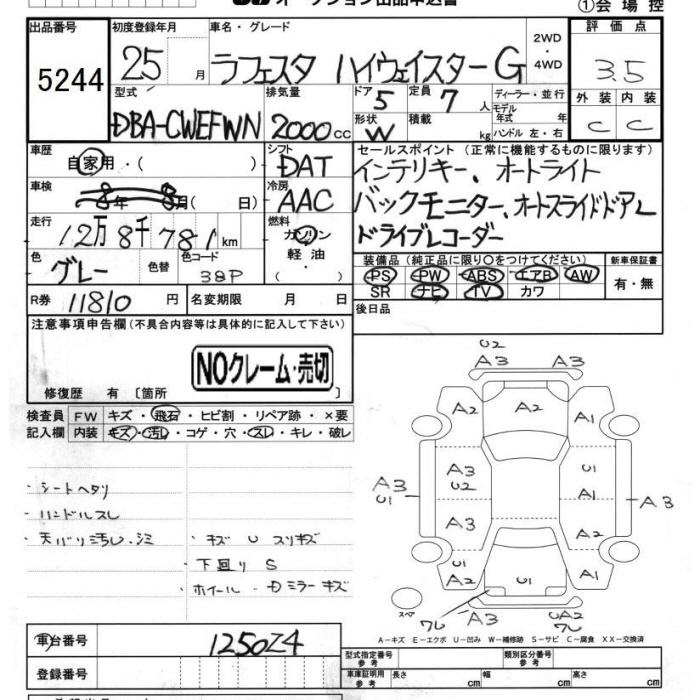 オークション出品申込書
①会場控
出品番号 5244
初度登録年月 25月
車名・グレード ラフェスタ ハイウェイスターG
2WD・4WD
評価点 3.5
型式 DBA-CWEFWN
排気量 2000cc
ドア 5 形状 W
定員 7人 積載 kg
ディーラー・並行
モデル年式 年
ハンドル 左・右
外装 C 内装 C
車歴 自家用・( )
シフト DAT
セールスポイント(正常に機能するものに限ります)
インテリキー、オートライト
バックモニター、オートスライドドアL
ドライブレコーダー
車検 8年 8月( 日)
冷房 AAC
走行 12万8千781km
燃料 ガソリン 軽油 ( )
色 グレー 色替 色コード 38P
装備品(純正品に限り○をつけてください) 新車保証書
PS PW ABS エアB AW 有・無
SR ナビ TV カワ
R券 11810円 名変期限 月 日
後日品
注意事項申告欄(不具合内容等は具体的に記入して下さい)
NOクレーム・売切
修復歴 有 〔箇所 〕
検査員 FW キズ・飛石・ヒビ割・リペア跡・×要
記入欄 内装 キズ・汚レ・コゲ・穴・スレ・キレ・破レ
・シートヘタリ
・ハンドルスレ
・天バリ汚レ、シミ
・キズ U スリキズ
・下回り S
・ホイール・Dミラーキズ
U2
A3 A3
A2 A2 A1
A3 U2 U1
A3 U1 A1 A3
A3 A2
U2 A2 U1 A1
スペア
A3 UA2
フレ フレ
A-キズ E-エクボ U-凹み W-補修跡 S-サビ C-腐食 XX-交換済
車台番号 1250Z4
登録番号
型式指定番号 参考 類別区分番号 参考
車庫証明用 参考 長さ cm 幅 cm 高さ cm